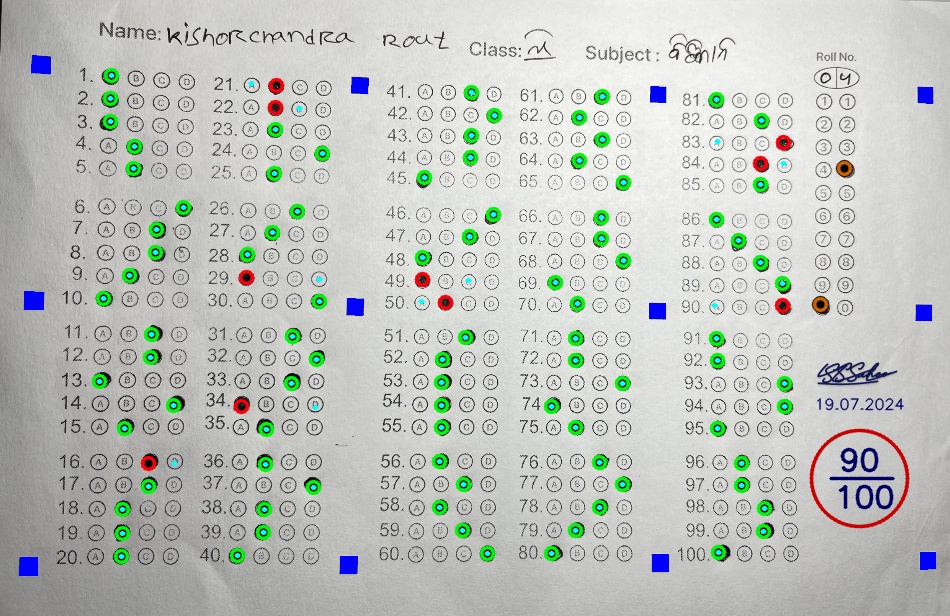 Name: kishorchandra Rout
Class:
Subject:
Roll No.
04
1. B C D
2. B C D
3. B C D
4. A C D
5. A C D
6. A B C
7. A B D
8. A B D
9. A C D
10. B C D
11. A B D
12. A B D
13. B C D
14. A B C
15. A C D
16. A B
17. A B D
18. A C D
19. A C D
20. A C D
21. C D
22. D
23. A C D
24. A B C
25. A C D
26. A B D
27. A C D
28. B C D
29. B C
30. A B C
31. A B D
32. A B C
33. A B D
34. B C D
35. A C D
36. A C D
37. A B C
38. A C D
39. A C D
40. B C D
41. A B D
42. A B C
43. A B D
44. A B D
45. B C D
46. A B C
47. A B D
48. B C D
49. B D
50. C D
51. A B D
52. A C D
53. A C D
54. A C D
55. A C D
56. A C D
57. A B D
58. A C D
59. A B D
60. A B C
61. A B D
62. A C D
63. A B D
64. A C D
65. A B C
66. A B D
67. A B D
68. A B C
69. B C D
70. A C D
71. A C D
72. A C D
73. A B C
74. B C D
75. A C D
76. A B D
77. A B C
78. A B D
79. A C D
80. B C D
81. B C D
82. A B D
83. B C
84. A B
85. A B D
86. B C D
87. A C D
88. A B D
89. A B C
90. B C
91. B C D
92. B C D
93. A B C
94. A B C
95. B C D
96. A C D
97. A C D
98. A B D
99. A B D
100. B C D
1 1
2 2
3 3
4
5 5
6 6
7 7
8 8
9 9
0
19.07.2024
90
100